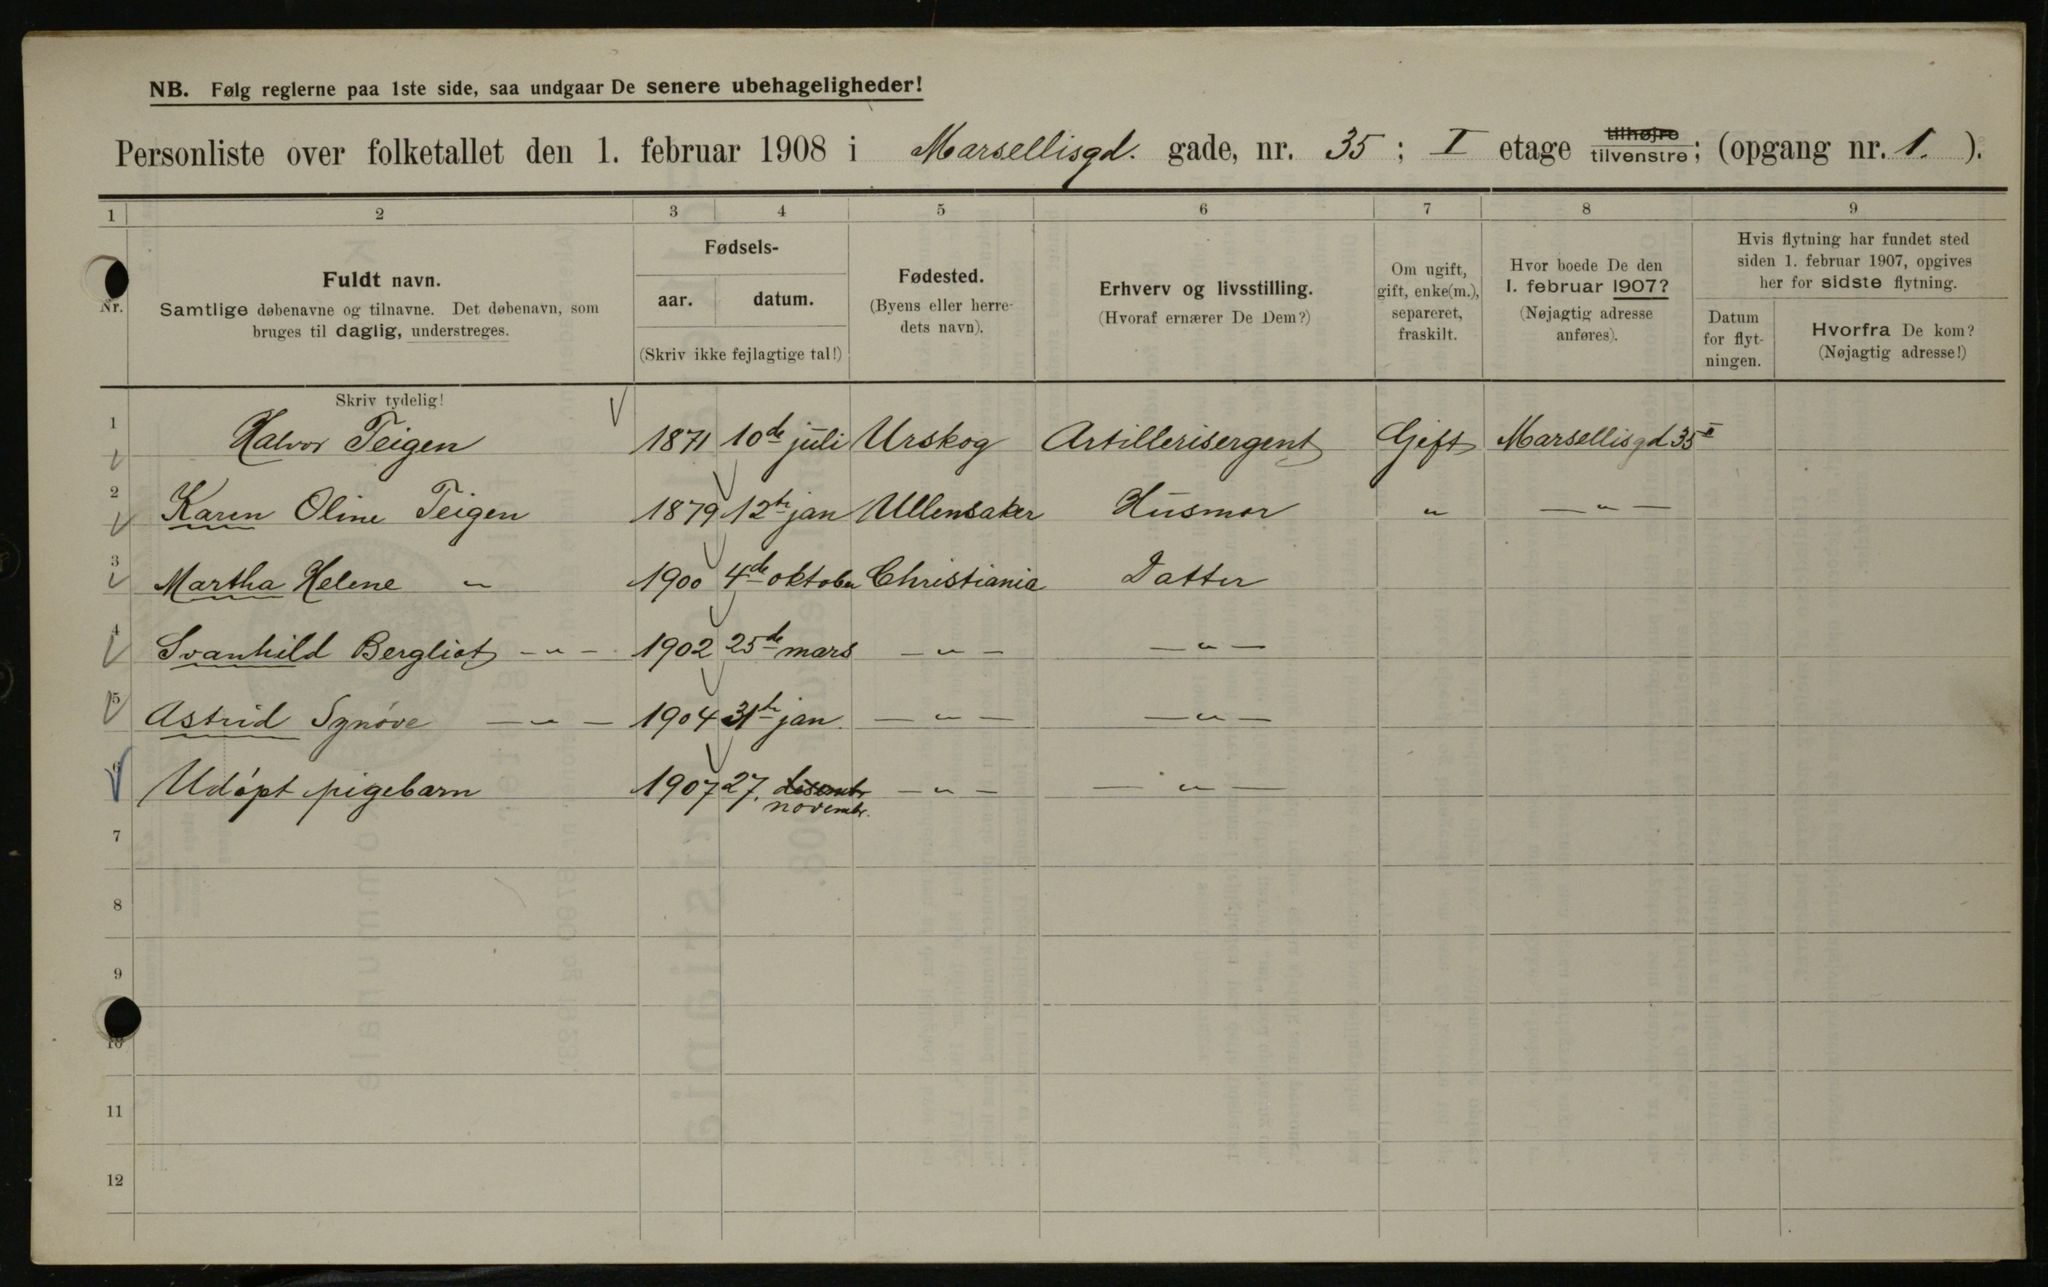 NB. Følg reglerne paa 1ste side, saa undgaar De senere ubehageligheder!
Personliste over folketallet den 1. februar 1908 i Marsellisgd. gade, nr. 35 ; I etage tilhøjre tilvenstre; (opgang nr. 1. ).
1 2 3 4 5 6 7 8 9
Nr.
Fuldt navn.
Samtlige døbenavne og tilnavne. Det døbenavn, som
bruges til daglig, understreges.
Fødsels-
aar. datum.
(Skriv ikke fejlagtige tal!)
Fødested.
(Byens eller herre-
dets navn).
Erhverv og livsstilling.
(Hvoraf ernærer De Dem?)
Om ugift,
gift, enke(m.),
separeret,
fraskilt.
Hvor boede De den
1. februar 1907?
(Nøjagtig adresse
anføres).
Hvis flytning har fundet sted
siden 1. februar 1907, opgives
her for sidste flytning.
Datum
for flyt-
ningen.
Hvorfra De kom?
(Nøjagtig adresse!)
Skriv tydelig!
1 Halvor Teigen 1871 10de juli Urskog Artillerisergent Gift Marsellisgd 35 I
2 Karen Oline Teigen 1879 12te jan Ullensaker Husmor " — " —
3 Martha Helene " 1900 4de oktober Christiania Datter
4 Svanhild Bergliot — " — 1902 25de mars — " — — " —
5 Astrid Synøve — " — 1904 31te jan. — " — — " —
6 Udøpt pigebarn 1907 27. desembr novembr. — " — — " —
7
8
9
10
11
12